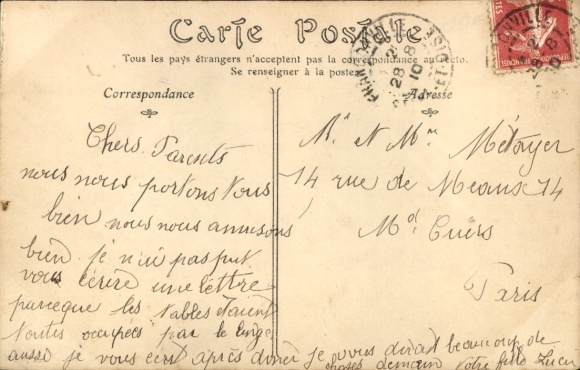 Carte Postale
Tous les pays étrangers n'acceptent pas la correspondance au recto.
Se renseigner à la poste.
Correspondance
Adresse
Chers Parents
nous nous portons tous
bien nous nous amusons
bien je n'ai pas put
vous écrire une lettre
parceque les tables étaient
toutes occupées par le linge
aussi je vous écris après dîner je vous dirait beaucoup de
choses demain votre fille Lucie
Mr et Mme Métayer
14 rue de Meaux 14
Md Cuirs
Paris